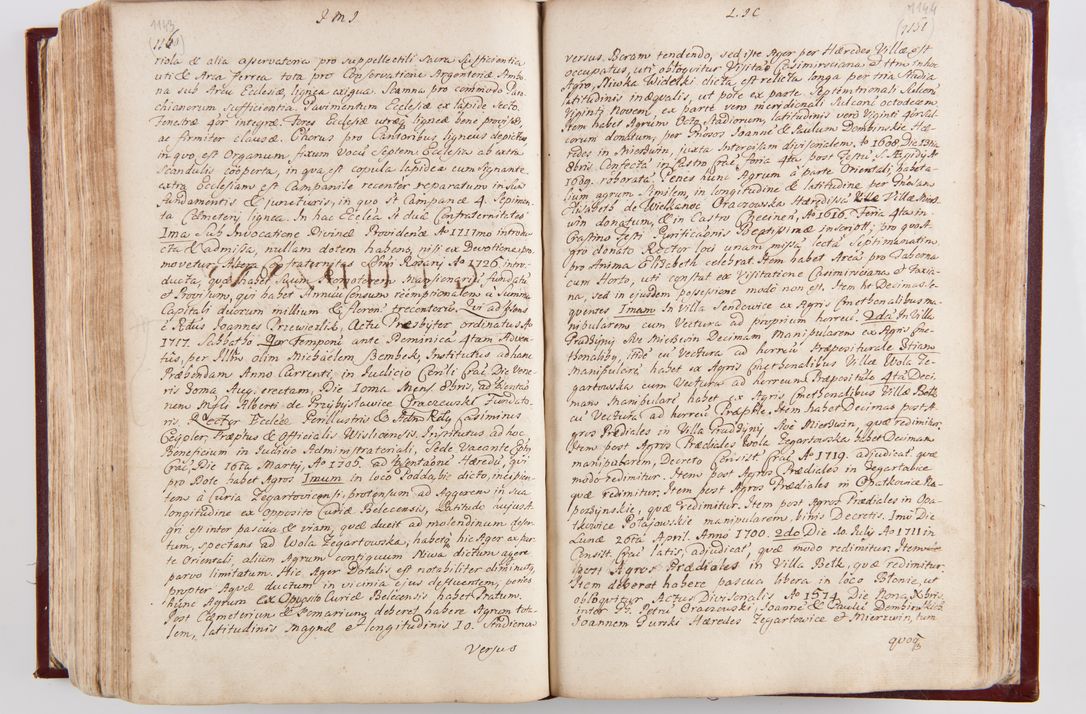 1143
J M J
riola & alia asservatoria pro suppellectili Sacra sufficientia
uti & Arca ferrea tota pro Conservatione Argenteriæ Ambo-
na sub Arcu Ecclesiæ lignea exigua. Scamna pro commodo Par-
chianorum Sufficientia. Pavimentum Ecclesiæ ex lapide Secto.
Fenestræ 4or integræ. Fores Ecclesiæ utræq ligneæ bene provisæ
ac firmiter clausæ. Chorus pro Cantoribus ligneus depictus
in quo est Organum fixum Vocū Septem Ecclesia ab extra
Scandulis cooperta, in qua est copula lapidea cum signante.
extra Ecclesiam est Campanile recenter reparatum in sui
fundamentis & juncturis, in quo st Campanæ 4. Sepimen-
ta Cœmeterij lignea. In hac Ecclia st duæ Confraternitates
Ima Sub Invocatione Divinæ Providentiæ Ao 1711mo introdu-
cta & admissa, nullam dotem habens, nisi ex Devotione pro-
movetur. Altera Confraternitas SSmi Rosarij Ao 1726. intro-
ducta, quæ habet Suum Promotorem Mansionariū, fundatū
et Provisum, qui habet Annuū Censum reemptionalem a Summa
Capitali duorum millium & floreni trecentorū. Qui ad præns
e Rdus Joannes Przewieslik, Actu Præsbyter ordinatus Ao
1717. Sabbatho 4or Temporū ante Dominicā 4tam Adven-
tūs, per Illm olim Michaelem Szembek, Institutus ad hanc
Præbendam Anno Currenti, in Judicio Consli Crac. Die Vene-
ris Ioma Aug. erectam, Die Ioma Mens Obris, ad Præntaō-
nem Mgfi Alberti de Przybysławice Czaczewski Fundato-
ris. Rector Eccleæ Perillustris & Admr Rdg Casimirus
Czepler, Præptus & Officialis Wislicensis. Institutus ad hoc
Beneficium in Judicio Administratoriali, Sede Vacante Epli
Crac. Die 16ta Martij, Ao 1705. ad Præntaōnē Hæredū, qui
pro Dote habet Agros Imum in loco Poddabie dicto, incipien-
tem â Curia Zegartovicensi, protensum ad Aggerem in sua
longitudine ex opposito Curiæ Belecensis, Latitudo aujust.
gri est inter pascua & viam, quæ ducit ad molendinum deser-
tum, spectans ad Wola Zegartowska, habetq hic Ager ex par-
te Orientali, alium Agrum contiguum Niwa dictum aggere
parvo limitatum. Hic Ager Dotalis est notabiliter diminutq
propter Aquæ ductum in vicinia ejus defluentem, penes
hunc Agrum ex opposito Curiæ Belecensis habet Pratum.
Post Cœmeterium & Pomarium deberet habere Agrum tota-
lem, latitudinis magnæ et longitudinis 10. Stadiorum
Versus
1144
(1151)
L. J C
versus. Boram tendendo, sed iste Ager per Hæredes Villæ est
occupatus, uti obloquitur Visitaō Casimirsciana. 4tum habet
Agrū, Niwka Widelski dicta, est relicta longa per tria Stadia
latitudinis inæqualis, ut pote ex parte Septemtrionali Sulcorū
Viginti Novem, ex parte vero meridionali Sulcorū octodecem.
Item habet Agrum Octo Stadiorum, latitudinis vero Viginti 4or Sul-
corum donatum, per Gnosos Joannē & Paulum Dembinskie Hæ-
redes in Mierzwin, juxta Intercisam divisionalem, Ao 1608 Die 13tia
Obris Confecta in Castro Crac. feria 4ta post Festū S. Ægidij Ao
1609. roborata. Penes hunc Agrum â parte Orientali, habet a-
lium agrum Similem, in longitudine & latitudine per Gnosam
Elisabeth de Wielkanoc Oraczowska Hæredissā Villæ Mierz-
win donatum, & in Castro Checinen. Ao 1610. Feria 4ta in
Crastino Festi Purificaōnis Beatissimæ inscriptū; pro quo A-
gro donato Rector loci unam missā lectā Septimanatim
pro Anima Elisabeth celebrat. Item habet Areā pro Taberna
cum Horto, uti constat ex Visitatione Casimirsciana et Foxia-
na, sed in ejusdem possessione modo non est. Item ht Decimas se-
quentes Imam In Villa Sendowice ex Agris Cmethonalibus ma-
nipularem cum Vectura ad proprium horreū. 2dā In Villa
Gradzyny sive Mierzwin Decimam manipularem ex Agris Cme-
thonalibq, itid cū Vectura ad horreū Præpositurale. 3tiam
Manipularē habet ex Agris Cmethonalibus Villæ Wola Ze-
gartowska cum Vectura ad horreum Præpositule. 4tā Deci-
mam Manipularē habet ex Agris Cmethonalibus Villæ Belk
cū Vectura ad horreū Præptle. Item habet Decimas post A-
gros Prædiales in Villa Gradzyny sivè Mierzwin, quæ redimitur.
Item post Agros Prædiales Wola Zegartowska habet Decimam
manipularem, Decreto Consist. Crac. A. 1719. adjudicat. quæ
modo redimitur. Item post Agros Prædiales in Zegartowice
quæ redimitur. Item post Agros Prædiales in Opatkowice Ra-
poszynskie, quæ redimitur. Item post Agros Prædiales in Opa-
tkowice Pałajowskie manipularem, binis Decretis. Imo Die
Lunæ 26ta April. Anno 1700. 2do Die 10. July Ao 1711 in
Consist. Crac. latis, adjudicat. quæ modo redimitur. Item
Agros Prædiales in Villa Belk, quæ redimitur.
Item deberet habere pascua libera in loco Błonie, ut
obloquitur Actus Divisionalis Ao 1574. Die Nona Xbris,
inter G. Petrū Oraczowski, Joannē & Paulū Dembinskie
Joannem Gurski Hæredes Zegartowice et Mierzwin, tum
quoq